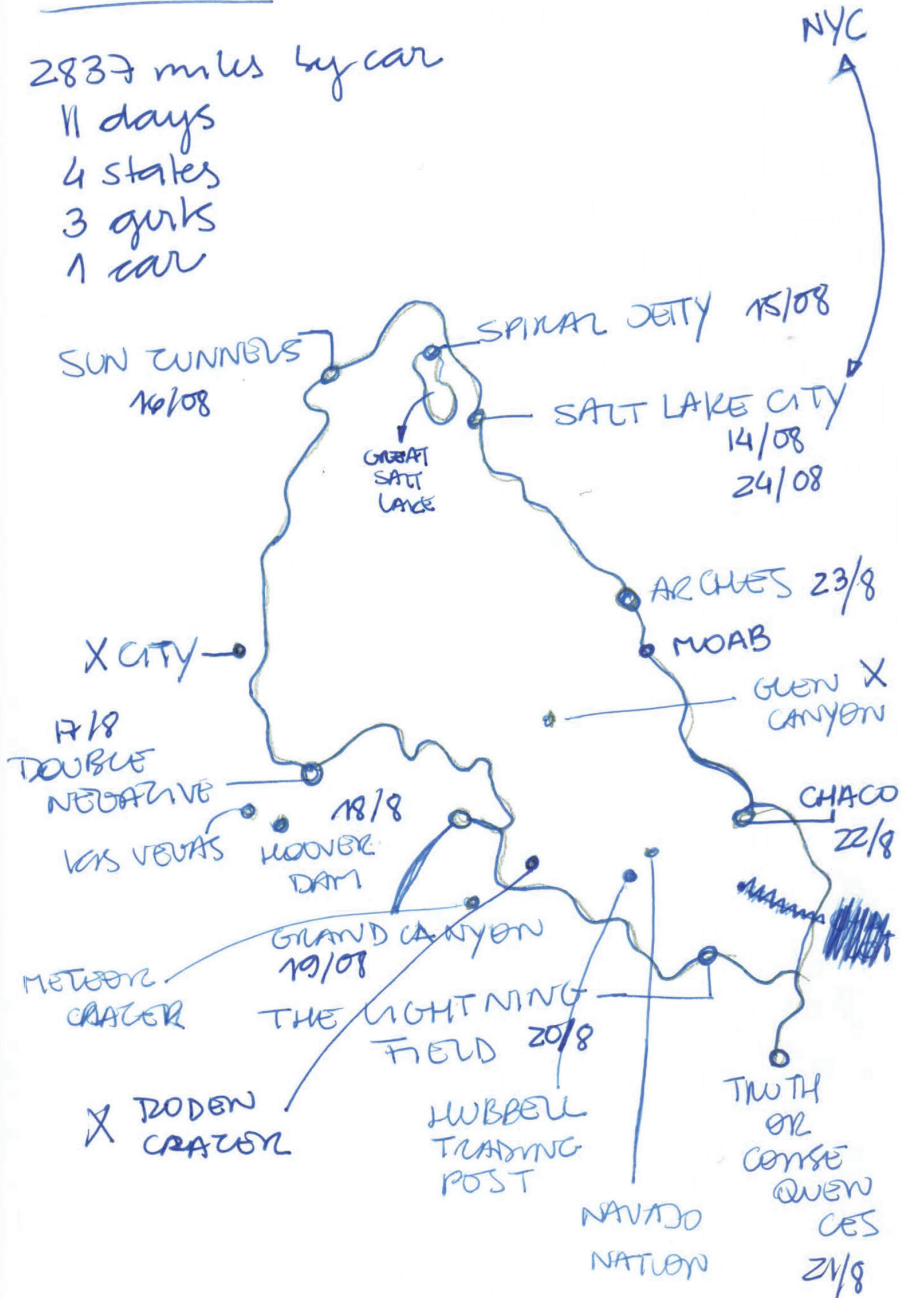 2837 miles by car
11 days
4 states
3 girls
1 car
NYC
SPIRAL JETTY 15/08
SUN TUNNELS
16/08
SALT LAKE CITY
14/08
24/08
GREAT
SALT
LAKE
ARCHES 23/8
MOAB
X CITY
GLEN X
CANYON
17/8
DOUBLE
NEGATIVE
CHACO
22/8
18/8
LAS VEGAS
HOOVER
DAM
GRAND CANYON
19/08
METEOR
CRATER
THE LIGHTNING
FIELD 20/8
X RODEN
CRATER
HUBBELL
TRADING
POST
NAVAJO
NATION
TRUTH
OR
CONSE
QUEN
CES
21/8